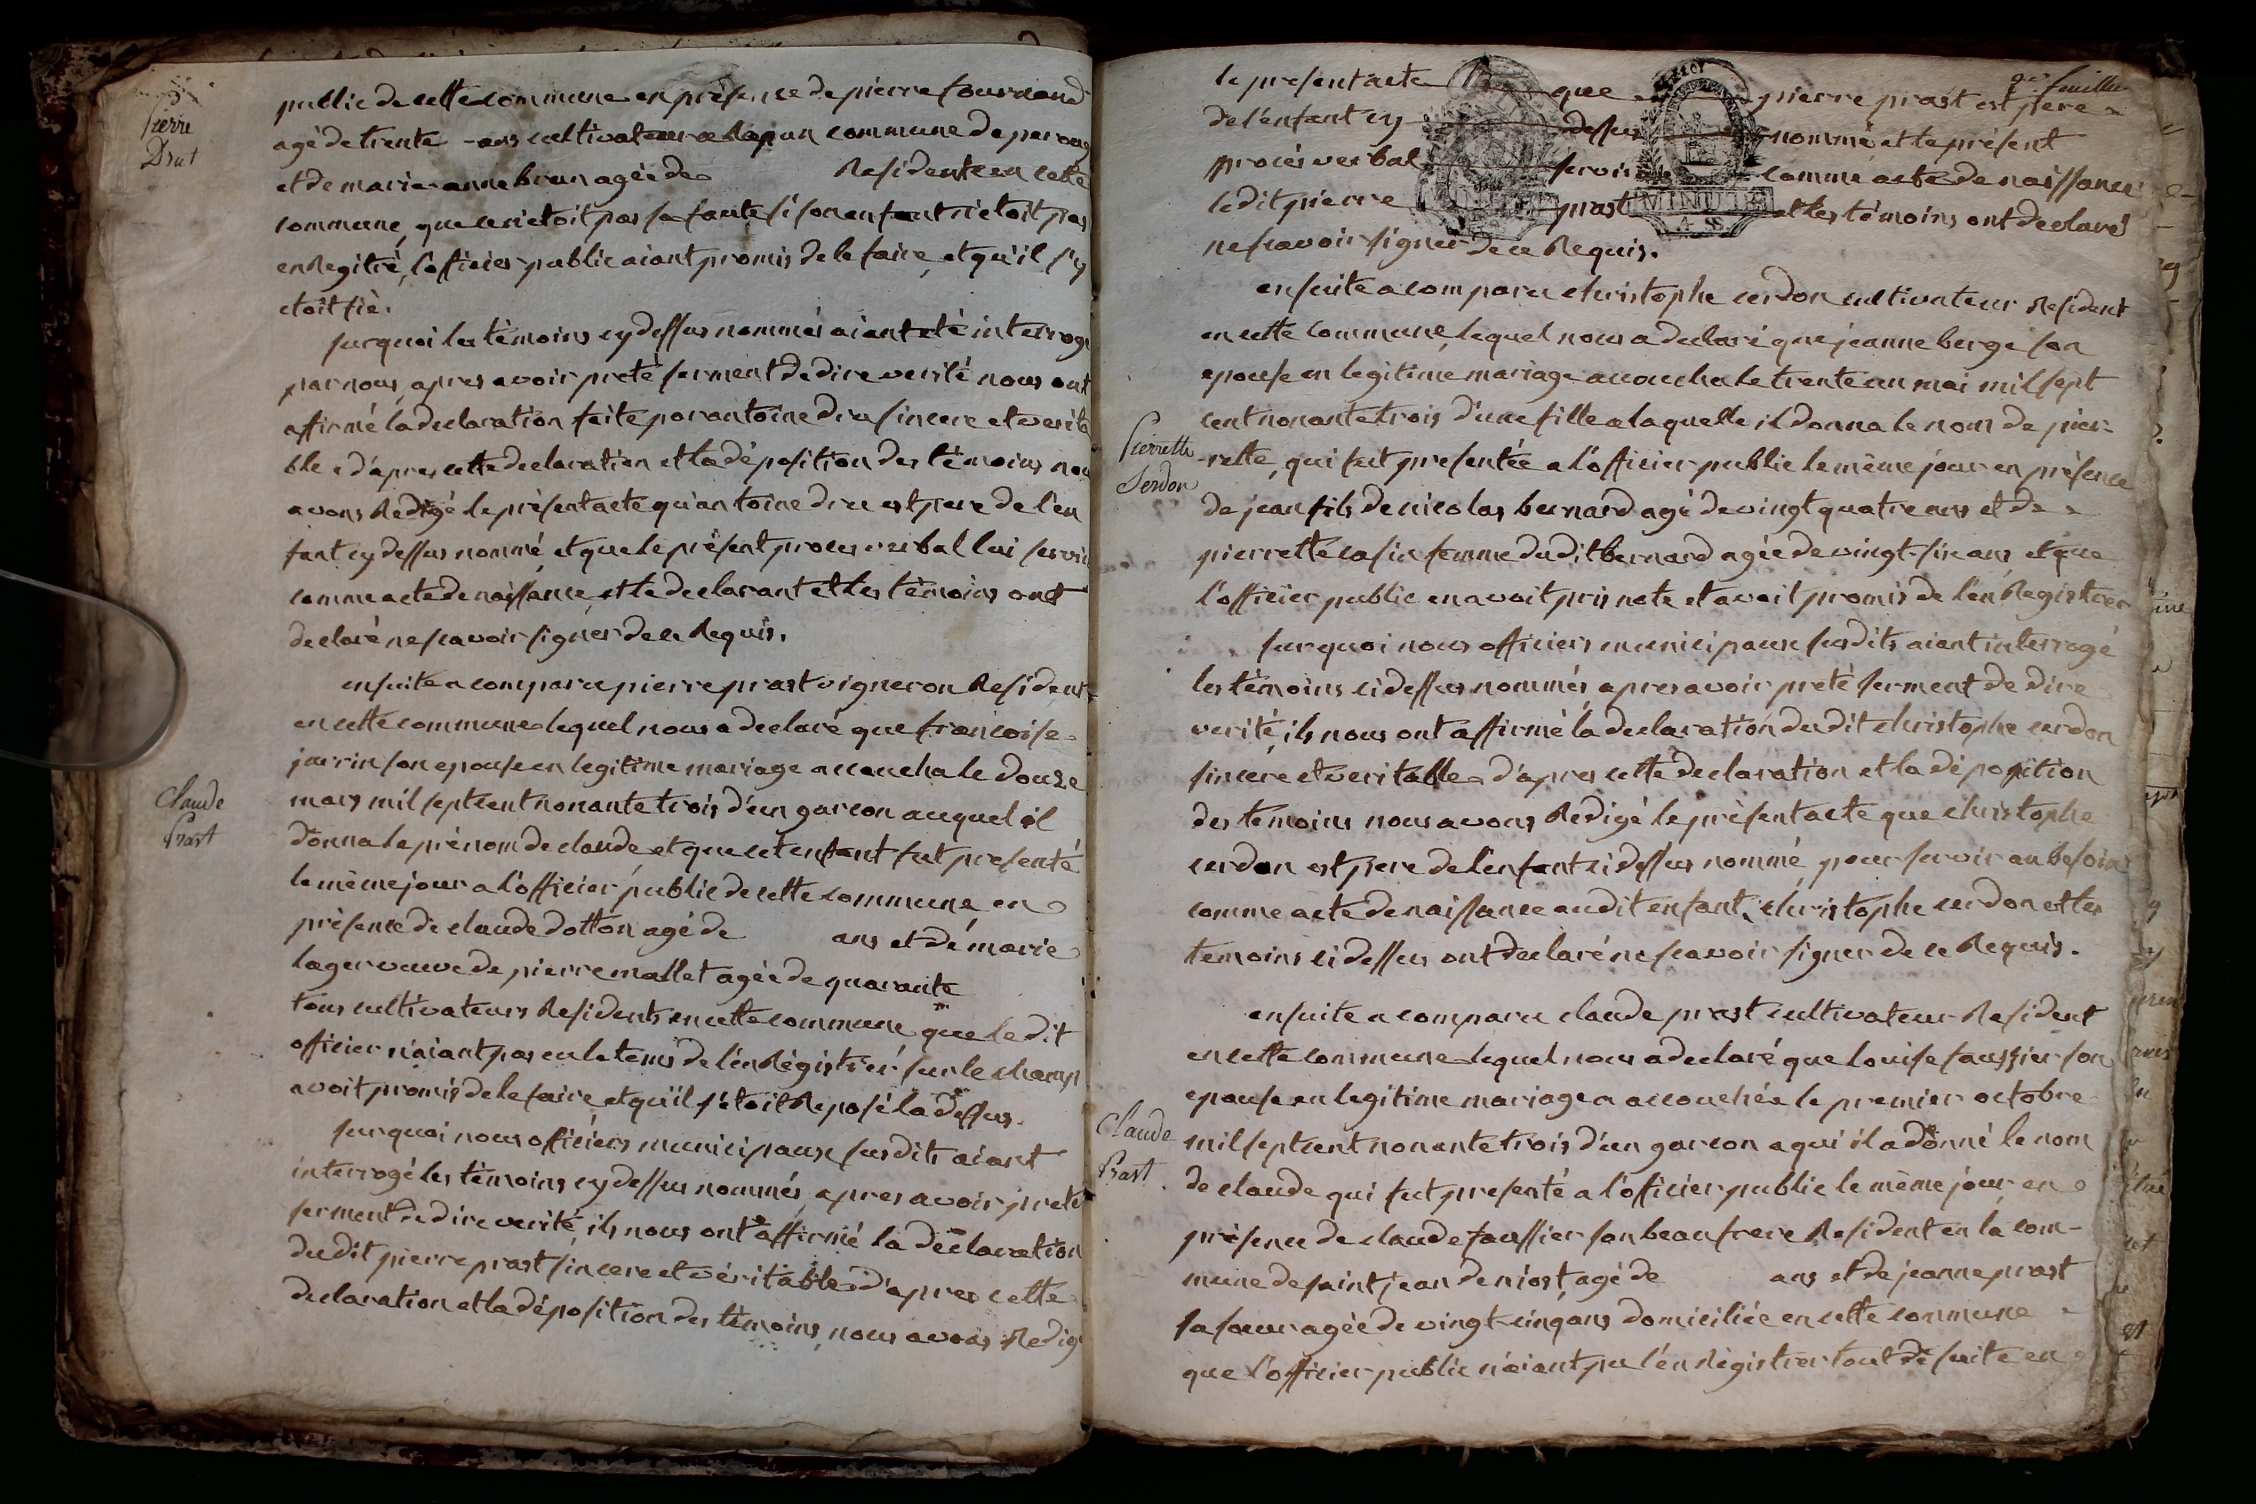 Pierre
Drut
public de cette commune en présence de pierre fournand
agé de trente - ans cultivateur a commune de perouge
et de marie anne brun agée de Residente en cette
commune, que ce n'etoit pas sa faute si son enfant n'etoit pas
enRegitré, l'officier public aiant promis de le faire, et qu'il s'y
etoit fié.
surquoi les témoins cy dessus nommés aiant eté interrogé
par nous, apres avoir preté serment de dire verité nous ont
affirmé la declaration faite par antoine dru sincere et verita
ble, d'apres cette declaration et la déposition des témoins nou
avons Redigé le présent acte qu'antoine dru est pere de l'en
fant cy dessus nommé, et que le présent proces verbal lui servir
comme acte de naissance, et le declarant et les témoins ont
declaré ne scavoir signer de ce Requis.
ensuite a comparu pierre prast vigneron Resident
en cette commune lequel nous a declaré que francoise
jarrin son epouse en legitime mariage accoucha le douze
Claude
Prast
mars mil sept cent nonante trois d'un garcon auquel il
donna le prénom de claude, et que cet enfant fut presenté
le même jour a l'officier public de cette commune, en
présence de claude dotton agé de ans et de marie
lager veuve de pierre mallet agée de quarante
tous cultivateurs Residents en cette commune que le dit
officier n'aiant pas eu le tems de l'enRégistrer sur le champ
avoit promis de le faire, et qu'il s'etoit Reposé la dessus.
surquoi nous officiers municipaux susdits aiant
interrogé les témoins cy dessus nommés, apres avoir preté
serment de dire verité, ils nous ont affirmé la declaration
du dit pierre prast sincere et véritable d'apres cette
declaration et la déposition des témoins, nous avons Redigé
feuillet
le present acte que pierre prast est pere
de l'enfant cy dessus nommé et le présent
procés verbal servir comme acte de naissance
le dit pierre prast et les témoins ont declaré
MINUTE
ne scavoir signer de ce Requis.
ensuite a comparu christophe cerdon cultivateur Resident
en cette commune, lequel nous a declaré que jeanne berge son
epouse en legitime mariage accoucha le trente un mai mil sept
cent nonante trois d'une fille a laquelle il donna le nom de pier-
Pierrette
Serdon
-rette, qui fut presentée a l'officier public le même jour en présence
de jean fils de nicolas bernard agé de vingt quatre ans et de
pierrette femme du dit bernard agée de vingt six ans et que
l'officier public en avoit pris note et avoit promis de l'enRegistrer
surquoi nous officiers municipaux susdits aiant interrogé
les témoins ci dessus nommés, apres avoir preté serment de dire
verité, ils nous ont affirmé la declaration du dit christophe cerdon
sincere et veritable d'apres cette declaration et la déposition
des temoins nous avons Redigé le présent acte que christophe
cerdon est pere de l'enfant ci dessus nommé, pour servir au besoin
comme acte de naissance audit enfant, christophe cerdon et les
temoins ci dessus ont declaré ne scavoir signer de ce Requis.
ensuite a comparu claude prast cultivateur Resident
en cette commune lequel nous a declaré que Louise faussier son
epouse en legitime mariage a accouchée le premier octobre
Claude
Prast.
mil sept cent nonante trois d'un garcon a qui il a donné le nom
de claude qui fut presenté a l'officier public le même jour en
présence de claude faussier son beau frere Resident en la com-
mune de saint jean de niost, agé de ans et de jeanne prast
sa soeur agée de vingt cinq ans domiciliée en cette commune
que l'officier public n'aiant pu l'enRégistrer tout de suite en